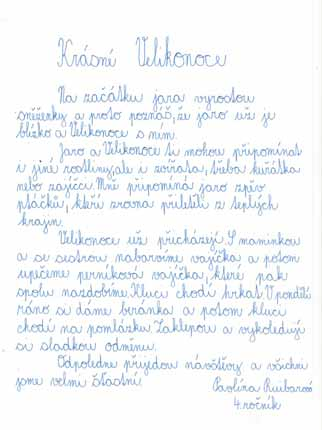 Krásné Velikonoce
Na začátku jara vyrostou
sněženky a proto poznáš, že jaro už je
blízko a Velikonoce s ním.
Jaro a Velikonoce ti mohou připomínat
i jiné rostliny, ale i zvířata, třeba kuřátka
nebo zajíčci. Mně připomíná jaro zpěv
ptáčků, kteří zrovna přiletěli z teplých
krajin.
Velikonoce už přicházejí. S maminkou
a se sestrou nabarvíme vajíčka a potom
upečeme perníková vajíčka, které pak
spolu nazdobíme. Kluci chodí hrkat. V pondělí
ráno si dáme beránka a potom kluci
chodí na pomlázku. Zaklepou a vykoledují
si sladkou odměnu.
Odpoledne přijedou návštěvy a všichni
jsme velmi šťastní.
Pavlína
4. ročník